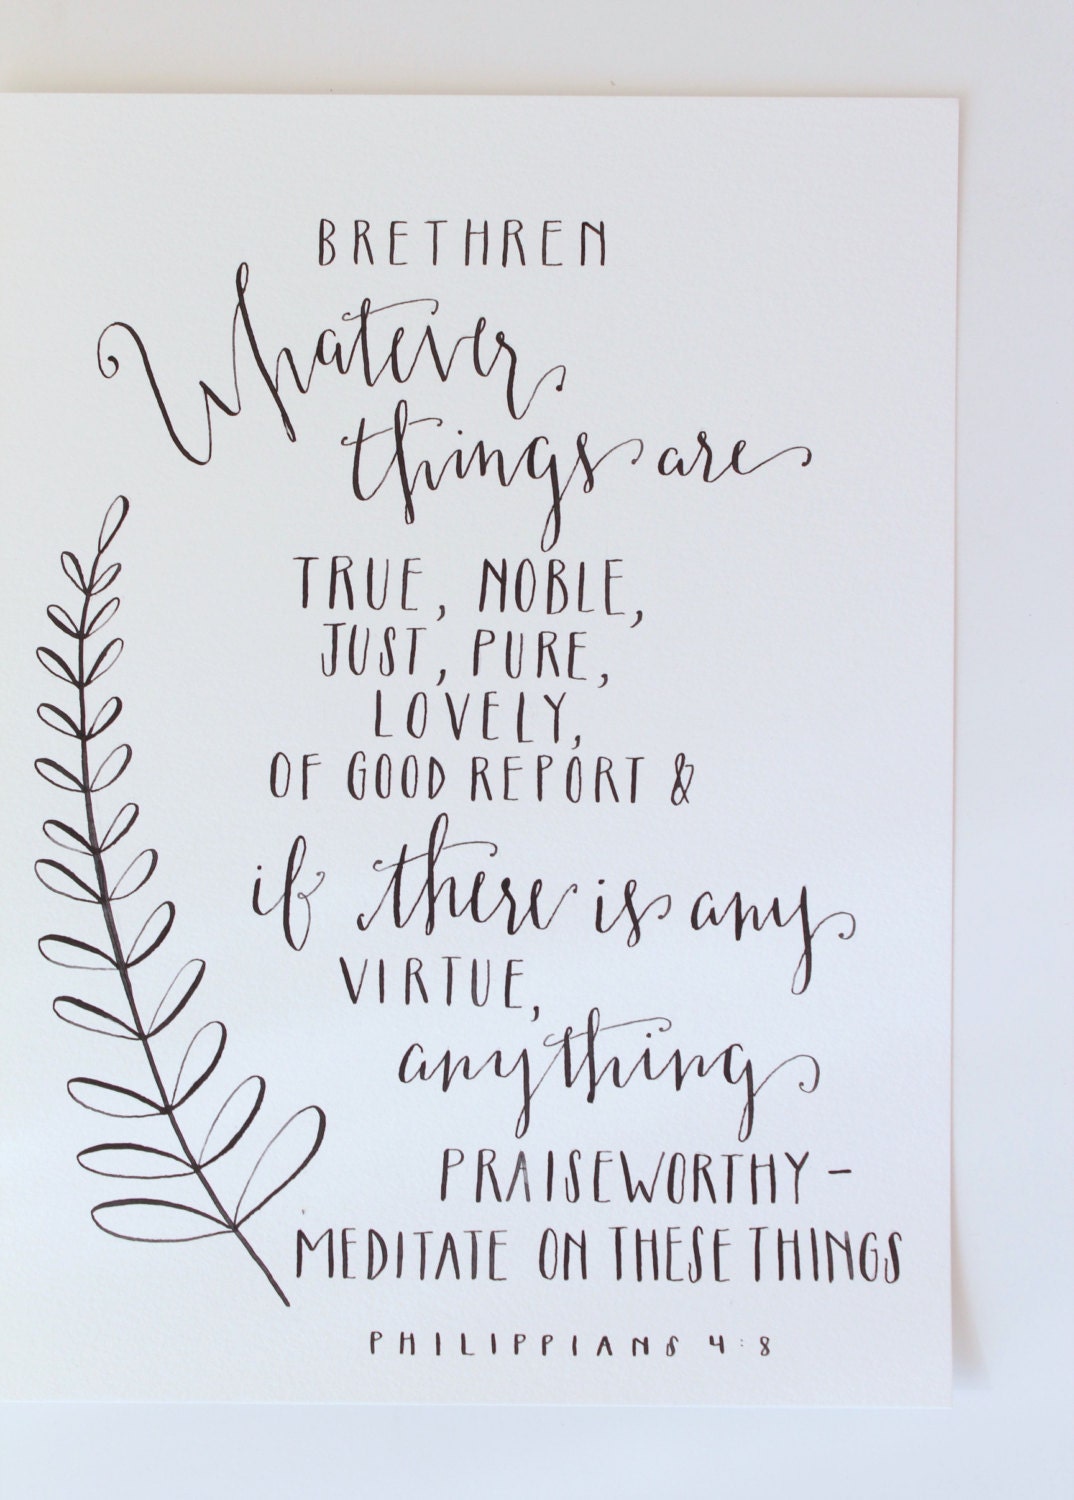 BRETHREN
Whatever
things are
TRUE, NOBLE,
JUST, PURE,
LOVELY,
OF GOOD REPORT &
if there is any
VIRTUE,
anything
PRAISEWORTHY -
MEDITATE ON THESE THINGS
PHILIPPIANS 4:8